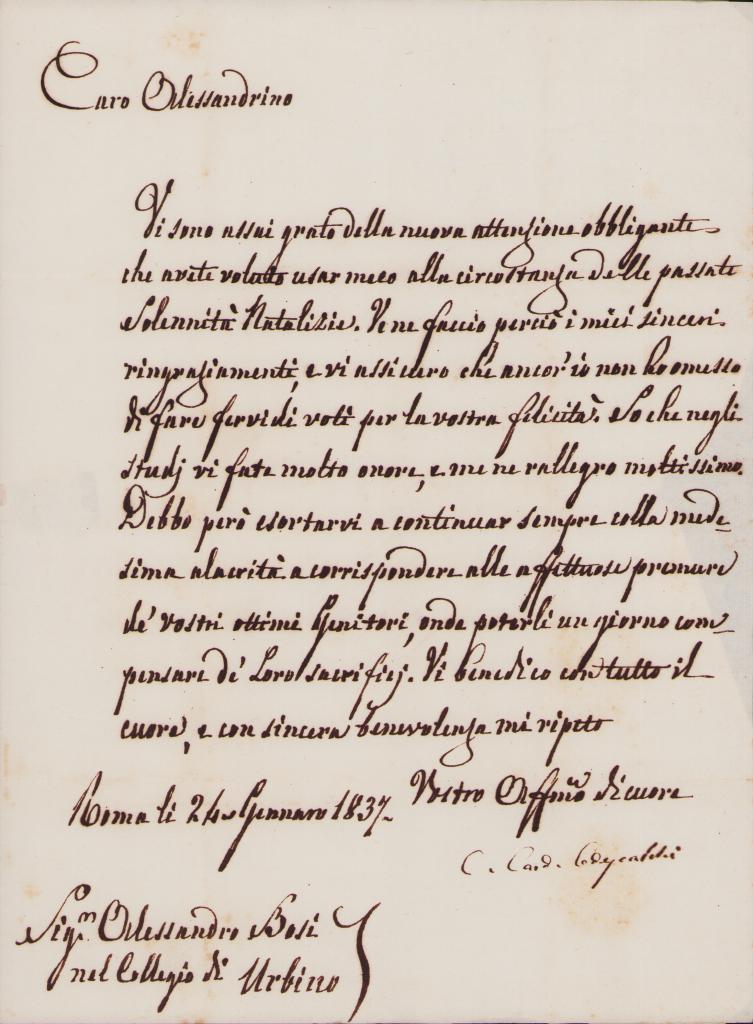 Caro Alessandrino
Vi sono assai grato della nuova attenzione obbligante
che avete voluto usar meco alla circostanza delle passate
Solennità Natalizie. Ve ne faccio perciò i miei sinceri
ringraziamenti, e vi assicuro che ancor'io non ho omesso
di fare fervidi voti per la vostra felicità. So che negli
studj vi fate molto onore, e me ne rallegro moltissimo.
Debbo però esortarvi a continuar sempre colla mede-
sima alacrità a corrispondere alle affettuose premure
de' vostri ottimi Genitori, onde poterli un giorno com-
pensare de' Loro sacrifizj. Vi benedico con tutto il
cuore, e con sincera benevolenza mi ripeto
Vostro Affmo di cuore
Roma li 24 Gennaro 1837.
C. Card.
Sigr Alessandro Bosi
nel Collegio di Urbino